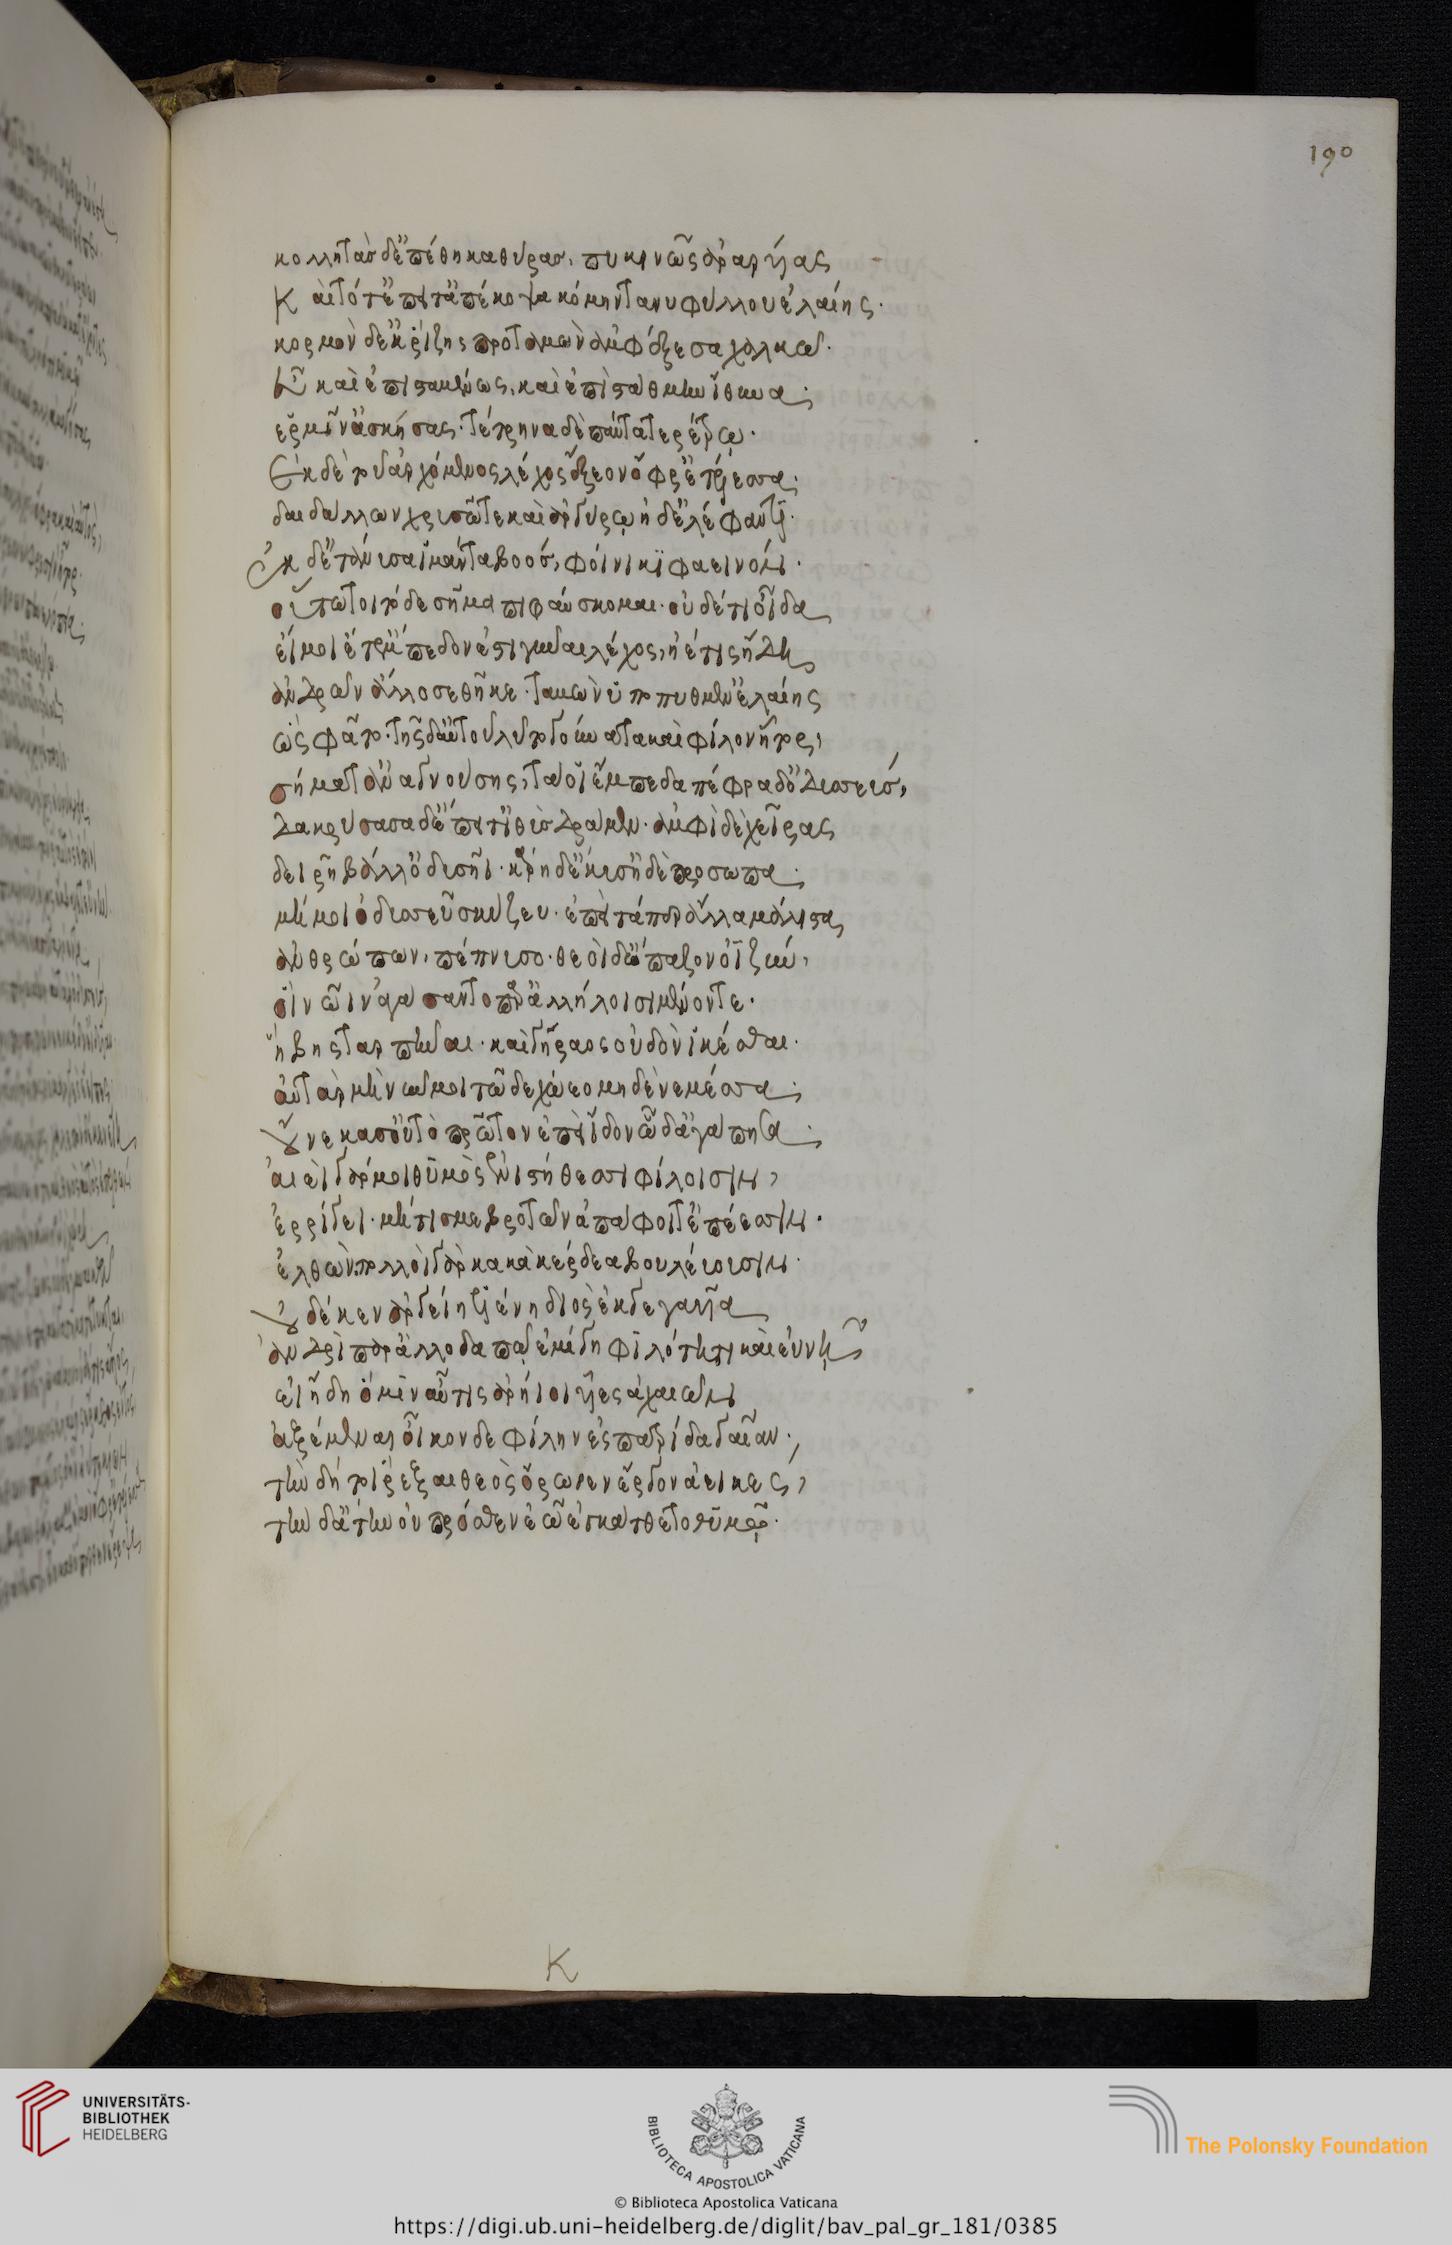 190
κολλητὰς δ' ἐπέθηκα θύρας, πυκινῶς ἀραρυίας
Καὶ τότ' ἔπειτ' ἀπέκοψα κόμην τανυφύλλου ἐλαίης.
κορμὸν δ' ἐκ ῥίζης προταμὼν ἀμφέξεσα χαλκῶ.
Εὖ καὶ ἐπισταμένως, καὶ ἐπὶ στάθμην ἴθυνα.
ἑρμῖν' ἀσκήσας. τέτρηνα δὲ πάντα τερέτρῳ.
Ἐκ δὲ τοῦ ἀρχόμενος λέχος ἔξεον ὄφρ' ἐτέλεσσα.
δαιδάλλων χρυσῶ τε καὶ ἀργύρῳ ἠδ' ἐλέφαντι.
Ἐκ δ' ἐτάνυσσα ἱμάντα βοός, φοίνικι φαεινόν.
οὕτω τοι τόδε σῆμα πιφαύσκομαι. οὐδέ τι οἶδα
εἴ μοι ἔτ' ἔμπεδόν ἐστι γύναι λέχος, ἠέ τις ἤδη
ἀνδρῶν ἄλλοσε θῆκε. ταμὼν ὕπο πυθμέν' ἐλαίης
ὣς φάτο. τῆς δ' αὐτοῦ λύτο γούνατα καὶ φίλον ἦτορ,
σήματ' ἀναγνούσης, τά οἱ ἔμπεδα πέφραδ' ὀδυσσεύς,
δακρύσασα δ' ἔπειτ' ἰθὺς δράμεν. ἀμφὶ δὲ χεῖρας
δειρῆ βάλλ' ὀδυσῆι. κάρη δ' ἔκυσ' ἠδὲ πρόσωπα.
μή μοι ὀδυσσεῦ σκύζευ. ἐπεὶ τάπερ ἄλλα μάλιστα
ἀνθρώπων, πέπνυσο. θεοὶ δ' ὤπαζον ὀϊζύν,
οἳ νῶιν ἀγάσαντο παρ' ἀλλήλοισι μένοντε.
ἥβης ταρπῆναι. καὶ γήραος οὐδὸν ἱκέσθαι.
αὐτὰρ μὴ νῦν μοι τῶδε χώεο μηδὲ νεμέσσα.
Οὕνεκά σ' οὐ τὸ πρῶτον ἐπεὶ ἴδον ὧδ' ἀγάπησα.
αἰεὶ γάρ μοι θυμὸς ἐνὶ στήθεσσι φίλοισιν,
ἐρρίγει. μή τίς με βροτῶν ἀπάφοιτ' ἐπέεσσιν.
ἐλθών. πολλοὶ γὰρ κακὰ κέρδεα βουλεύουσιν.
Οὐδέ κεν ἀργείη ἑλένη διὸς ἐκγεγαυῖα
ἀνδρὶ παρ' ἀλλοδαπῷ ἐμίγη φιλότητι καὶ εὐνῇ
εἰ ᾔδη ὅ μιν αὖτις ἀρήιοι υἷες ἀχαιῶν
ἀξέμεναι οἶκον δὲ φίλην ἐς πατρίδα γαῖαν.
τὴν δή τοι ῥέξαι θεὸς ὤρορεν ἔργον ἀεικές,
τὴν δ' ἄτην οὐ πρόσθεν ἑῶ ἐγκάτθετο θυμῷ.
K
UNIVERSITÄTS-
BIBLIOTHEK
HEIDELBERG
BIBLIOTECA APOSTOLICA VATICANA
The Polonsky Foundation
© Biblioteca Apostolica Vaticana
https://digi.ub.uni-heidelberg.de/diglit/bav_pal_gr_181/0385